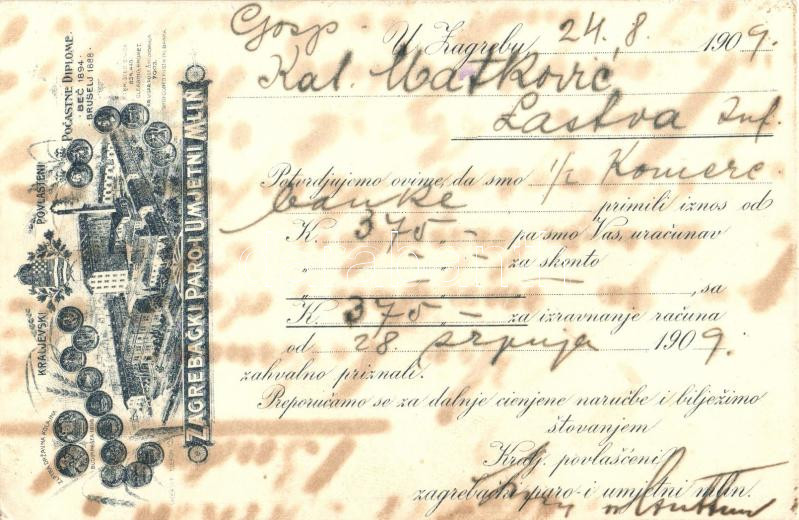 POČASTNE DIPLOME.
BEČ 1894.
BRUSELJ 1888.
KRALJEVSKI POVLAŠTENI
ZAGREBAČKI PARO-I UMJETNI MLIN
Gosp U Zagrebu, 24.8. 1909.
Kal. Matković
Lastva
Potvrdjujemo ovime, da smo 1/2 Komerc.
banke primili iznos od
K. 375 „ - pa smo Vas, uračunav
„ „ - - za skonto
, sa
K. 375 - za izravnanje računa
od 28 srpnja 1909.
zahvalno priznali.
Preporučamo se za dalnje cienjene naručbe i bilježimo
štovanjem
Kralj. povlašćeni
zagrebački paro-i umjetni mlin.